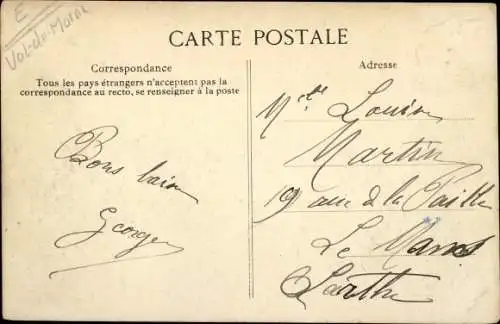 E
Val-de-Marne
CARTE POSTALE
Correspondance
Tous les pays étrangers n'acceptent pas la
correspondance au recto, se renseigner à la poste
Bons
George
Adresse
Melle Louise
Martin
19 rue de la Paille
Le Mans
Sarthe